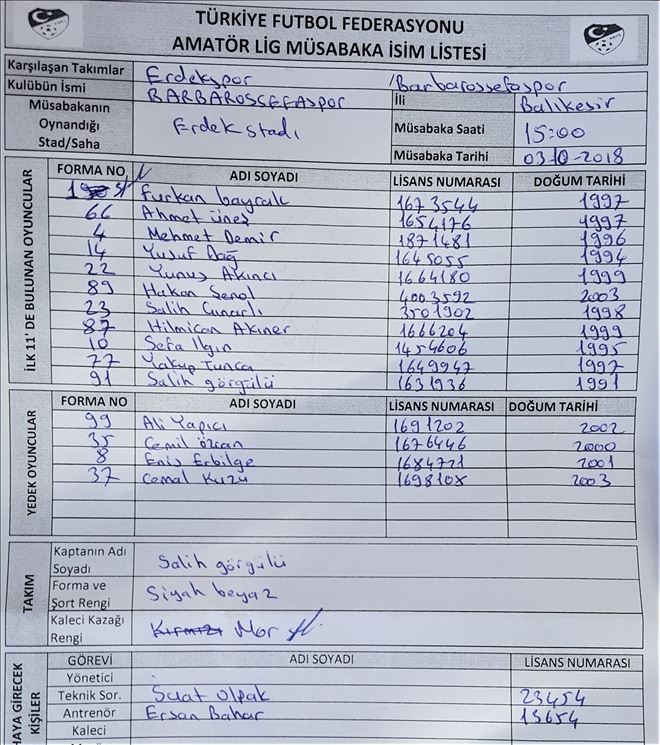 TÜRKİYE FUTBOL FEDERASYONU
AMATÖR LİG MÜSABAKA İSİM LİSTESİ
Karşılaşan Takımlar Erdekspor /Barbarossefaspor
Kulübün İsmi BARBAROSSEFASpor İli Balıkesir
Müsabakanın Oynandığı Stad/Saha Erdek stadı Müsabaka Saati 15:00
Müsabaka Tarihi 03.10-2018
İLK 11' DE BULUNAN OYUNCULAR
FORMA NO ADI SOYADI LİSANS NUMARASI DOĞUM TARİHİ
1 Furkan bayrak 1673544 1997
66 Ahmet üneş 1654176 1997
4 Mehmet Demir 1871481 1996
14 Yusuf Dağ 1645055 1994
22 Yunus Akıncı 1664180 1999
89 Hakan Şenol 4003592 2003
23 Salih Çınarlı 3501902 1998
87 Hilmican Akıner 1666204 1999
10 Sefa Ilgın 1454606 1995
77 Yakup Tunca 1649947 1997
91 Salih görgülü 1631936 1991
YEDEK OYUNCULAR
FORMA NO ADI SOYADI LİSANS NUMARASI DOĞUM TARİHİ
99 Ali Yapıcı 1691202 2002
35 Cemil özcan 1676446 2000
8 Enis Erbilge 1684721 2001
37 Cemal Kuzu 1698108 2003
TAKIM
Kaptanın Adı Soyadı Salih görgülü
Forma ve Şort Rengi Siyah beyaz
Kaleci Kazağı Rengi Kırmızı Mor
HAYA GİRECEK KİŞİLER
GÖREVİ ADI SOYADI LİSANS NUMARASI
Yönetici
Teknik Sor. Suat Olpak 23454
Antrenör Ersan Bahar 13654
Kaleci